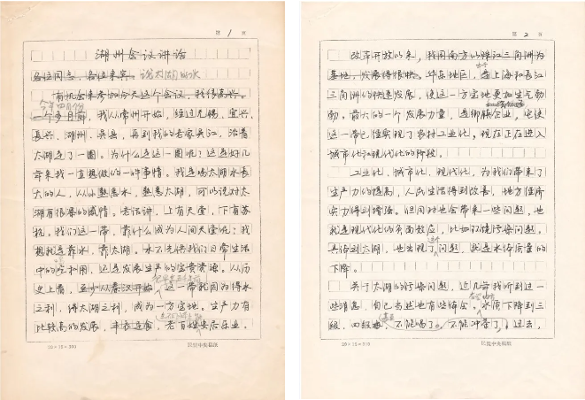 第 1 页
湖州会议讲话
各位同志、各位来宾: 说太湖的水
有机会来参加今天这个会议,我很高兴。
今年四月份
一个多月前,我从常州开始,经过无锡、宜兴、
长兴、湖州、吴县,再到我的老家吴江,沿着
太湖走了一圈。为什么走这一圈呢?这是好几
年来我一直想做的一件事情。我是喝太湖水长
大的人,从小熟悉水,熟悉太湖,可以说对太
湖有很深的感情。老话讲,上有天堂,下有苏
杭。我们这一带,靠什么成为人间天堂呢?我
想就是靠水,靠太湖。水不光供我们日常生活
中的吃和用,还是发展生产的宝贵资源。从历
史上看,至少从春秋开始,这一带就因为得水
之利,得太湖之利,成为一方宝地。生产力有
比较高的发展,丰衣足食,老百姓安居乐业,
20×15=300
第 2 页
改革开放以来,我国南方的珠江三角洲为
基地,发展得很快。华东地区,靠上海和长江
三角洲的快速发展,使这一方宝地更加生气勃
勃。最大的一个发展力量,是乡镇企业,它使
这一带也实现了农村工业化,现在正在进入
城市化和现代化的阶段。
工业化、城市化、现代化,为我们带来了
生产力的提高,人民生活得到改善,地方经济
实力得到增强。但同时也会带来一些问题,也
就是现代化的负面效应,比如环境污染问题。
具体到太湖,也出现了问题,就是水体质量的
下降。
关于太湖的污染问题,这几年我听到过一
些消息,自己当然也有些体会。水质下降到三
级、四级 不能喝了,不能冲茶了,过去,
20×15=300